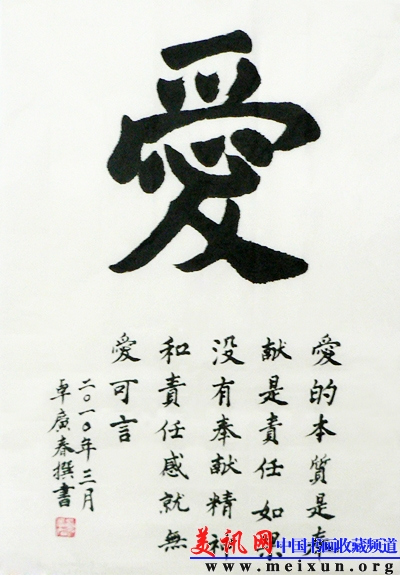 愛
愛的本質是奉
献是責任如果
没有奉献精神
和責任感就無
愛可言
二〇一〇年三月
卓廣春撰書
美讯网 中国书画收藏频道
www.meixun.org